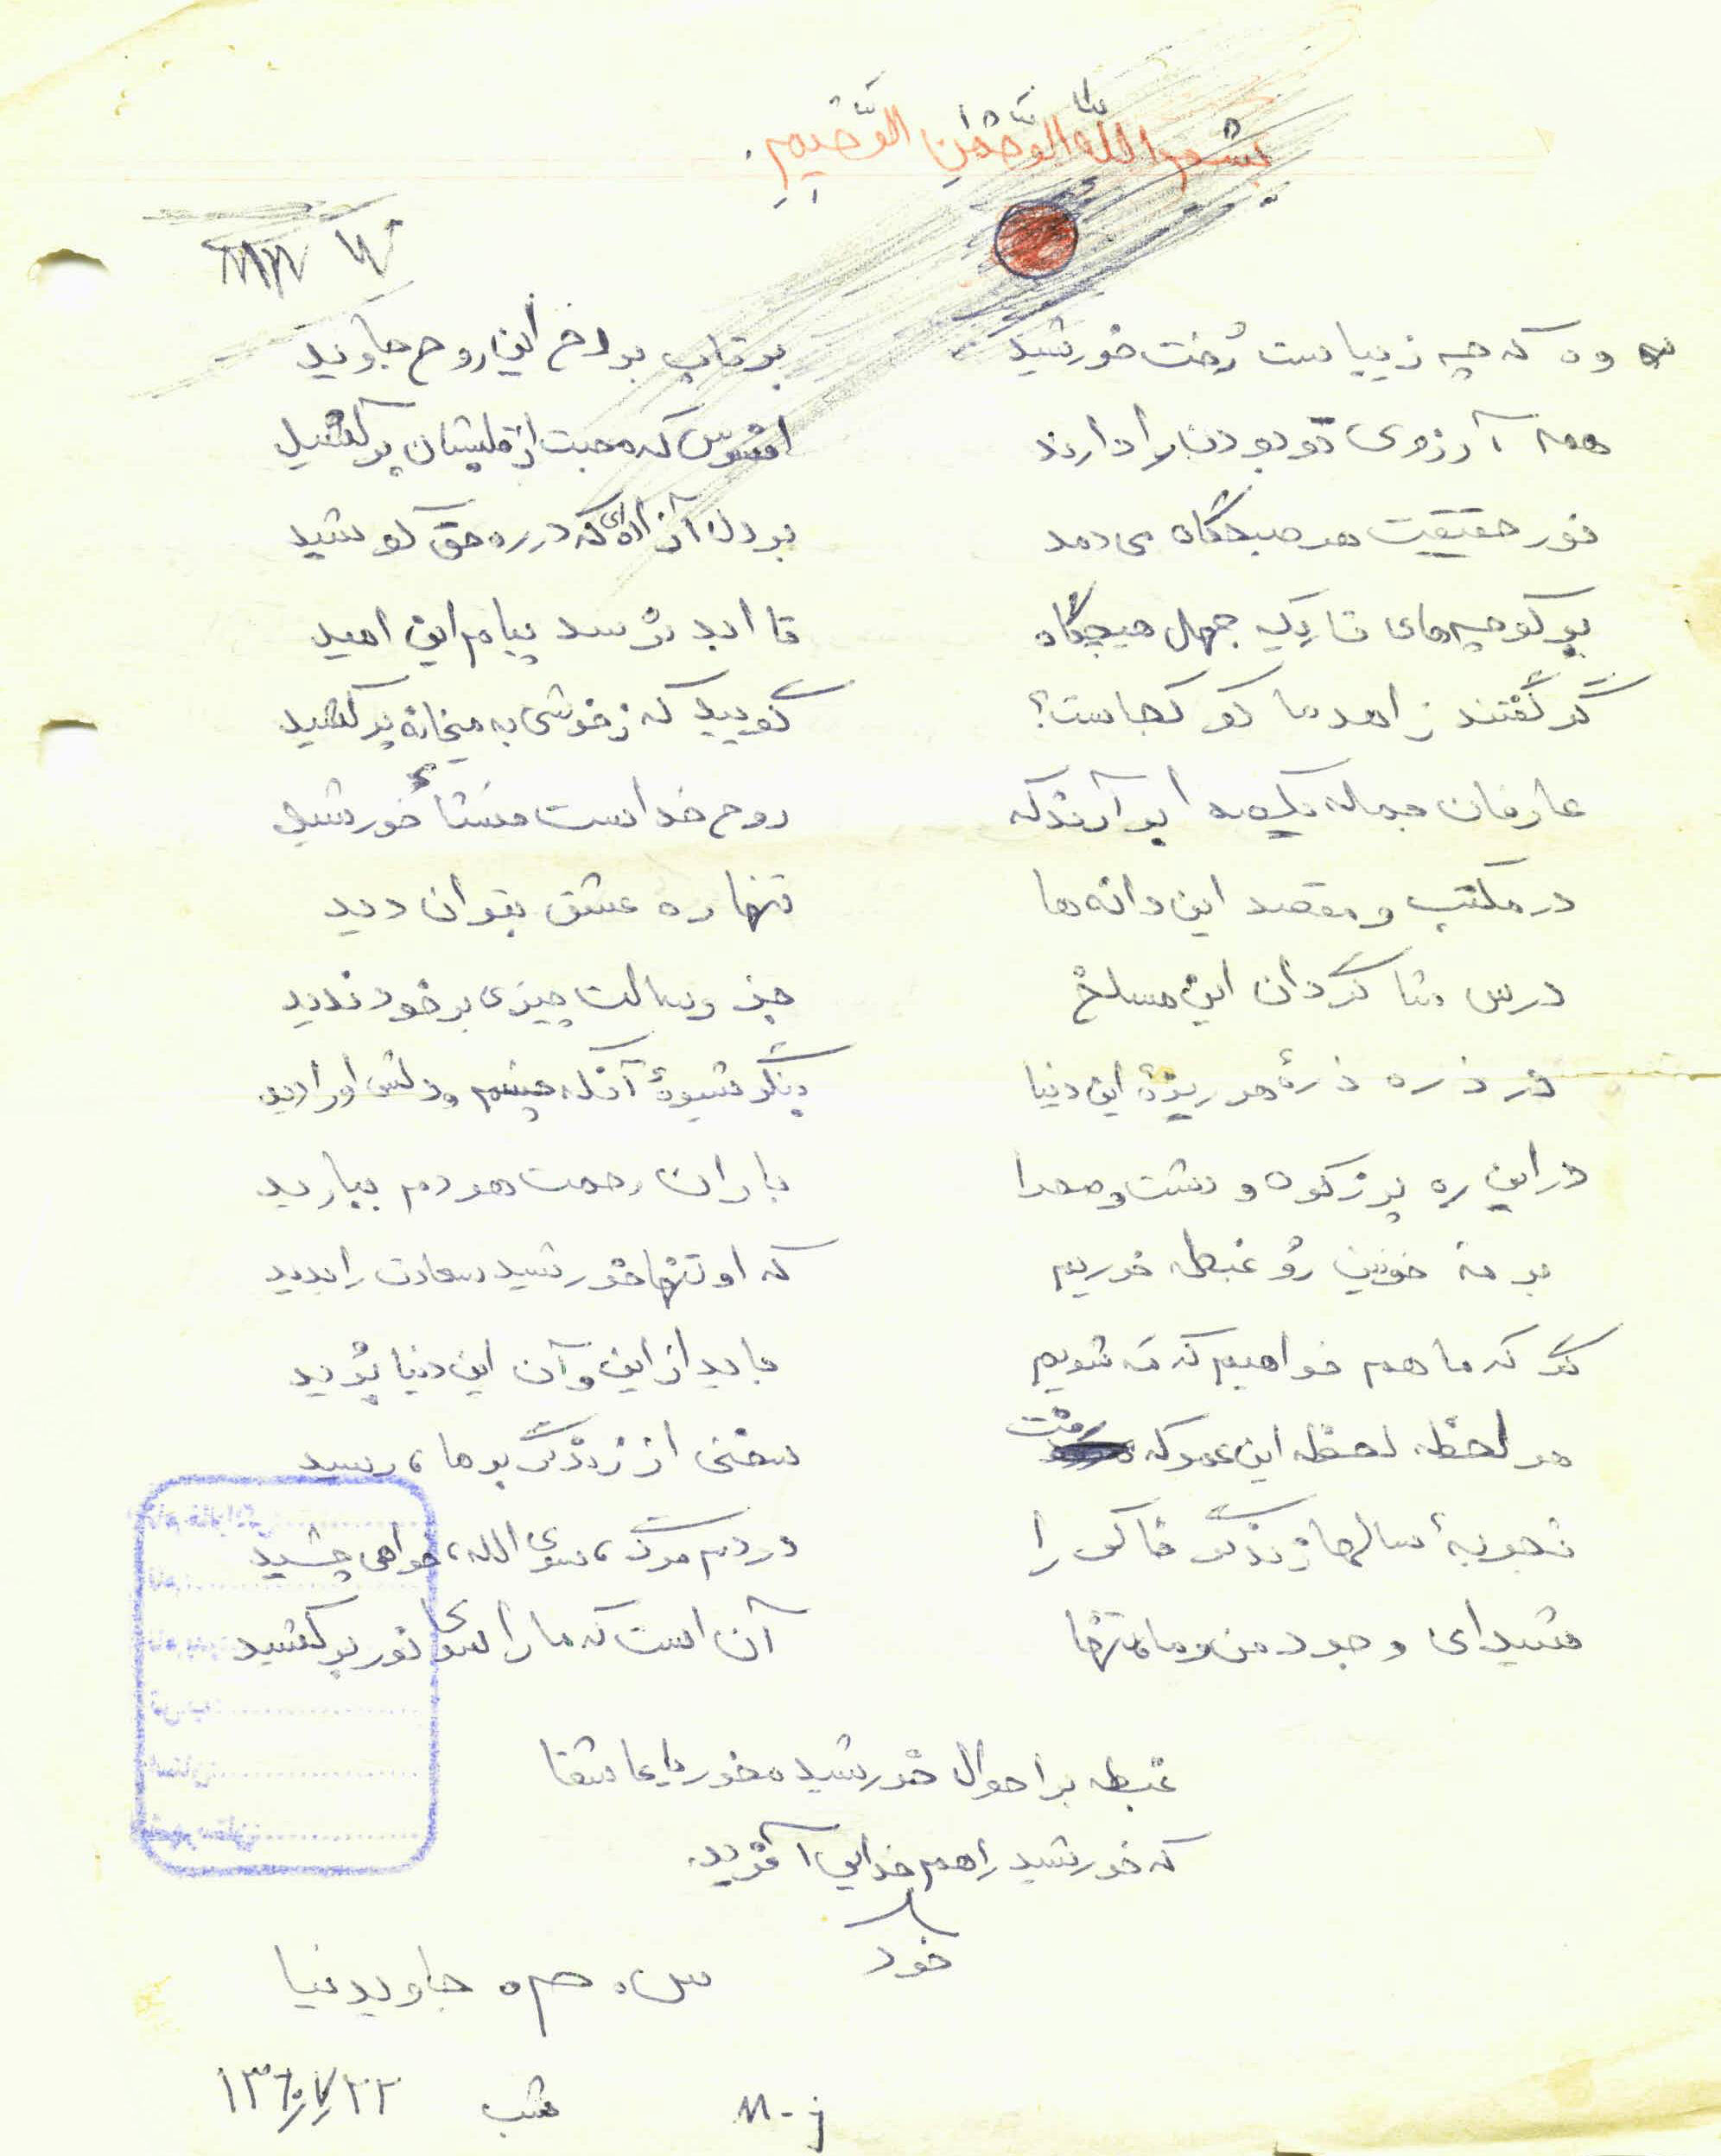 بِسْمِ اللَّهِ الرَّحْمنِ الرَّحِیمِ.
وه که چه زیباست رُخت خورشید برقاب بر رخ این روح جاوید
همه آرزوی تو بودن را دارند افسوس که محبت از قلبشان پر کشید
نور حقیقت هر صبحگاه می دمد بر دل آزاده‌ای که در ره حق کوشید
بر کوچه‌های تاریک جهل هیچگاه تا ابد نرسد پیام این امید
گر گفتند زاهد ما کو کجاست؟ گویید که ز خوشی به میخانه پر کشید
عارفان جمله یکصدا برآرند که روح خداست منشأ خورشید
در مکتب و مقصد این دانه‌ها تنها ره عشق بتوان دید
درس شاگردان این مسلخ جز رسالت چیزی بر خود ندید
در ذره ذرهٔ هر ریزهٔ این دنیا بنگر شیوهٔ آنکه چشم و دلش او را دید
در این ره پر ز کوه و دشت و صحرا باران رحمت هر دم ببارید
بر مه خونین رو غبطه خوریم که او تنها خورشید سعادت را بدید
گر که ما هم خواهیم که مَه شویم باید از این و آن این دنیا بُرید
هر لحظه لحظه این عمر که رفت سخنی از زندگی بر ما، رسید
تجربهٔ سالها زندگی خاکی را در دم مرگ، سوی الله، خواهی چشید
شیدای وجود من و ما تنها آن است که ما را سوی نور بر کشید
غبطه بر احوال خورشید مخور یا عاشقا
که خورشید را هم خدایی آفرید.
خود
جاویدنیا
M-j شب ۱۳٦۰/۷/۲۲
نام خانوادگی
نام
نام پدر
استان
شهرستان